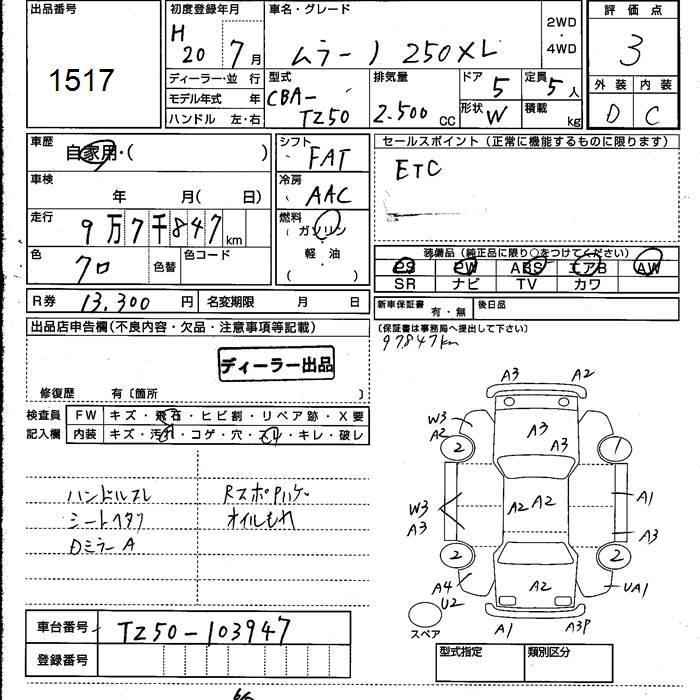 出品番号
1517
初度登録年月
H 20 7月
車名・グレード
ムラーノ 250XL
2WD
・
4WD
評価点
3
外装 内装
D C
ディーラー・並行
モデル年式 年
ハンドル 左・右
型式
CBA-
TZ50
排気量
2.500 cc
ドア 5
形状 W
定員 5人
積載 kg
車歴
自家用・( )
車検
年 月( 日)
走行
9万7千847km
色
クロ
色替
色コード
シフト
FAT
冷房
AAC
燃料
ガソリン
・
軽油
( )
セールスポイント(正常に機能するものに限ります)
ETC
装備品(純正品に限り○をつけてください)
PS PW ABS エアB AW
SR ナビ TV カワ
R券 13,300円
名変期限 月 日
新車保証書 有・無
後日品
(保証書は事務局へ提出して下さい)
97847km
出品店申告欄(不良内容・欠品・注意事項等記載)
ディーラー出品
修復歴 有〔箇所 〕
検査員
記入欄
FW キズ・飛石・ヒビ割・リペア跡・X要
内装 キズ・汚れ・コゲ・穴・スレ・キレ・破レ
ハンドルスレ
シートヘタリ
Dミラー A
オイルもれ
A3 A2
W3
A2
A3
A3
2 1
W3
A3
A2 A2
A1
A3
2 2
A4
U2
A2
UA1
A1 A3P
スペア
車台番号 TZ50-103947
登録番号
型式指定 類別区分